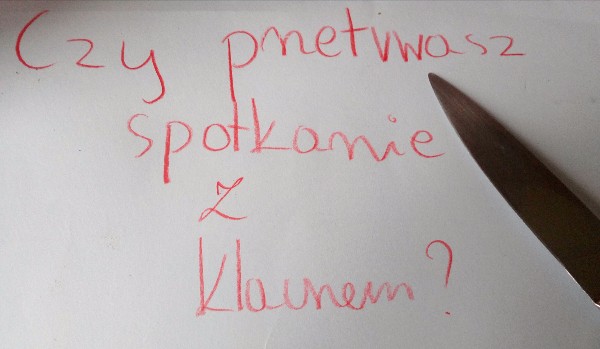 Czy przetrwasz
spotkanie
z
klaunem?